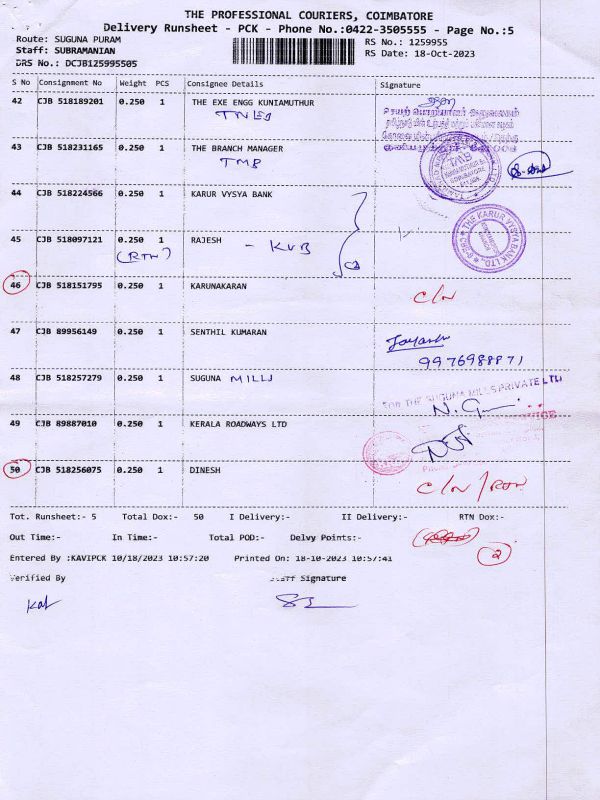 THE PROFESSIONAL COURIERS, COIMBATORE
Delivery Runsheet - PCK - Phone No.:0422-3505555 - Page No.:5
Route: SUGUNA PURAM
RS No.: 1259955
Staff: SUBRAMANIAN
RS Date: 18-Oct-2023
DRS No.: DCJB125995505
S No Consignment No Weight PCS Consignee Details Signature
42 CJB 518189201 0.250 1 THE EXE ENGG KUNIAMUTHUR
TNEB
43 CJB 518231165 0.250 1 THE BRANCH MANAGER
TMB
TMB
44 CJB 518224566 0.250 1 KARUR VYSYA BANK
THE KARUR VYSYA BANK LTD.
45 CJB 518097121 0.250 1 RAJESH - KVB
(RTN)
46 CJB 518151795 0.250 1 KARUNAKARAN
C/N
47 CJB 89956149 0.250 1 SENTHIL KUMARAN
9976988871
48 CJB 518257279 0.250 1 SUGUNA MILLS
FOR THE SUGUNA MILLS PRIVATE LTD
49 CJB 89887010 0.250 1 KERALA ROADWAYS LTD
50 CJB 518256075 0.250 1 DINESH
C/N / RTN
Tot. Runsheet:- 5 Total Dox:- 50 I Delivery:- II Delivery:- RTN Dox:-
Out Time:- In Time:- Total POD:- Delvy Points:-
2
Entered By :KAVIPCK 10/18/2023 10:57:20 Printed On: 18-10-2023 10:57:41
Verified By Staff Signature